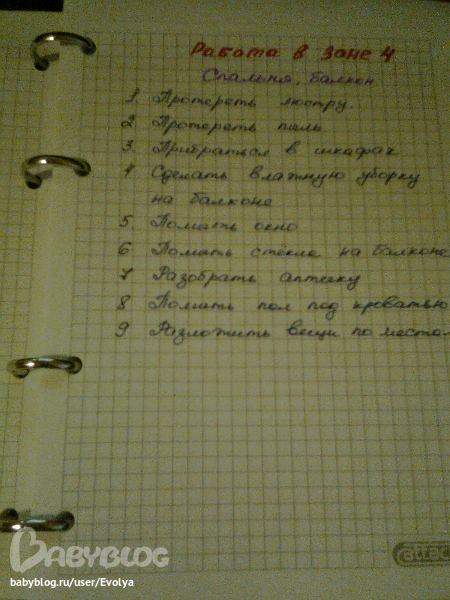 Работа в зоне 4
Спальня, балкон
1. Протереть люстру.
2. Протереть пыль
3. Прибраться в шкафах
4 Сделать влажную уборку
на балконе
5. Помыть окно
6 Помыть стёкла на балконе
7 Разобрать аптечку
8 Помыть пол под кроватью
9 Разложить вещи по местам
attac
BABYBLOG
babyblog.ru/user/Evolya